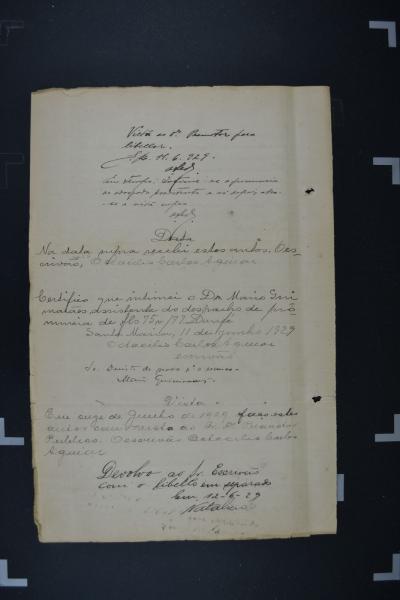 Vista ao Dr. Promotor para
libellar.
11. 6. 929.
Em tempo. Intime-se a pronuncia
ao advogado assistente e só depois abra-
se a vista supra
Data
Na data supra recebi estes autos. Oes-
crivão, Octacilio Carlos Aguiar
Certifico que intimei o Dr. Mario Gui
marães assistente do despacho de pro
nuncia de fls 75 a 77. Dou fé
Santa Maria, 11 de Junho 1929
Octacilio Carlos Aguiar
escrivão
Mario Guimarães
Vista
Em onze de Junho de 1929 faço estes
autos com vista ao Sr. Dr. Promotor
Publico. O escrivão Octacilio Carlos
Aguiar
Devolvo ao Sr. Escrivão
com o libello em separado
Em, 12-6-29